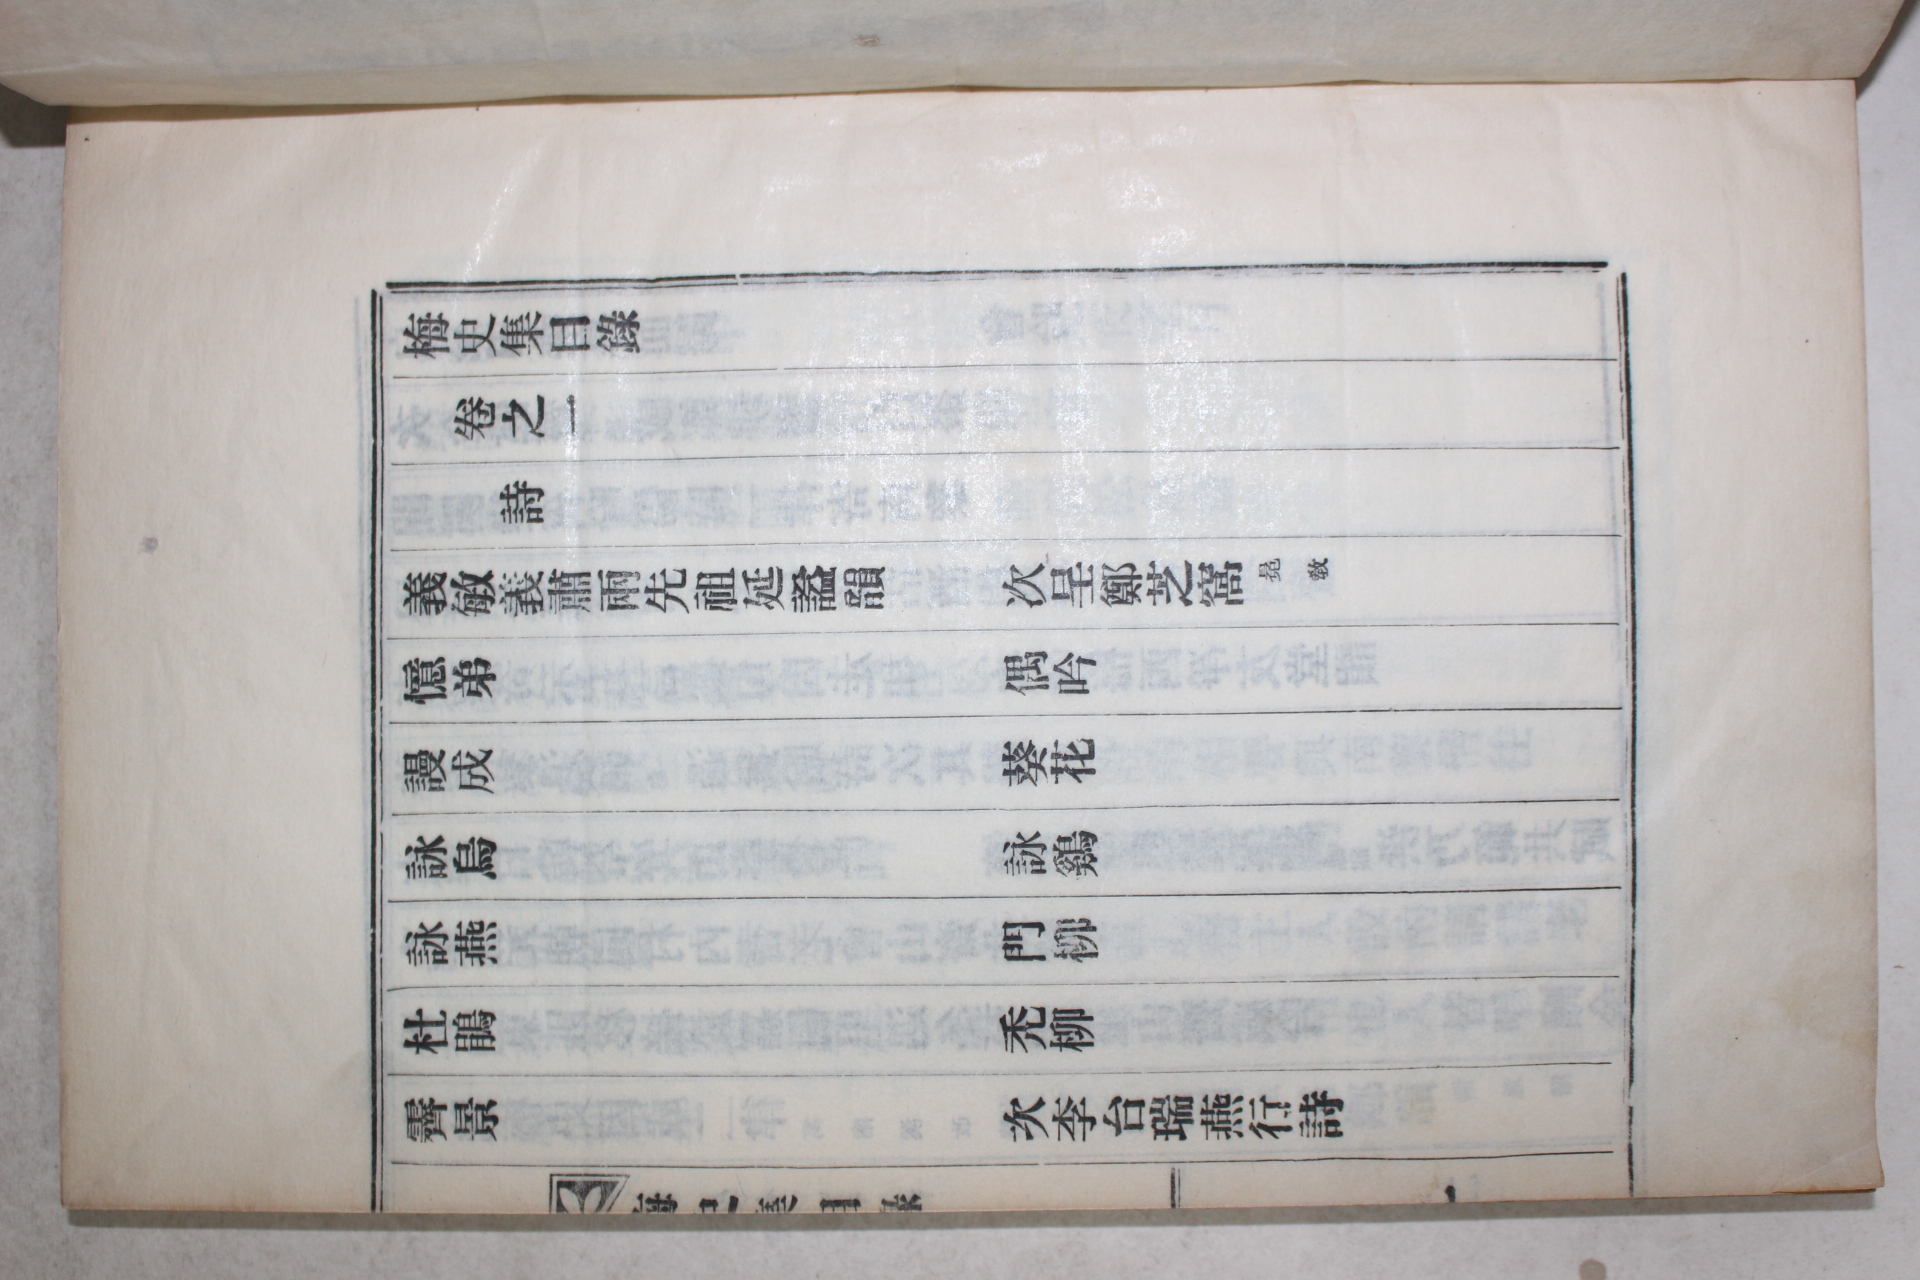 梅史集目錄
卷之一
詩
義敏義肅兩先祖延諡韻 次呈鄭芝窩
憶弟 偶吟
謾成 葵花
詠烏 詠鷄
詠燕 門柳
杜鵑 禿柳
霽景 次李台瑞燕行詩
梅史集目錄